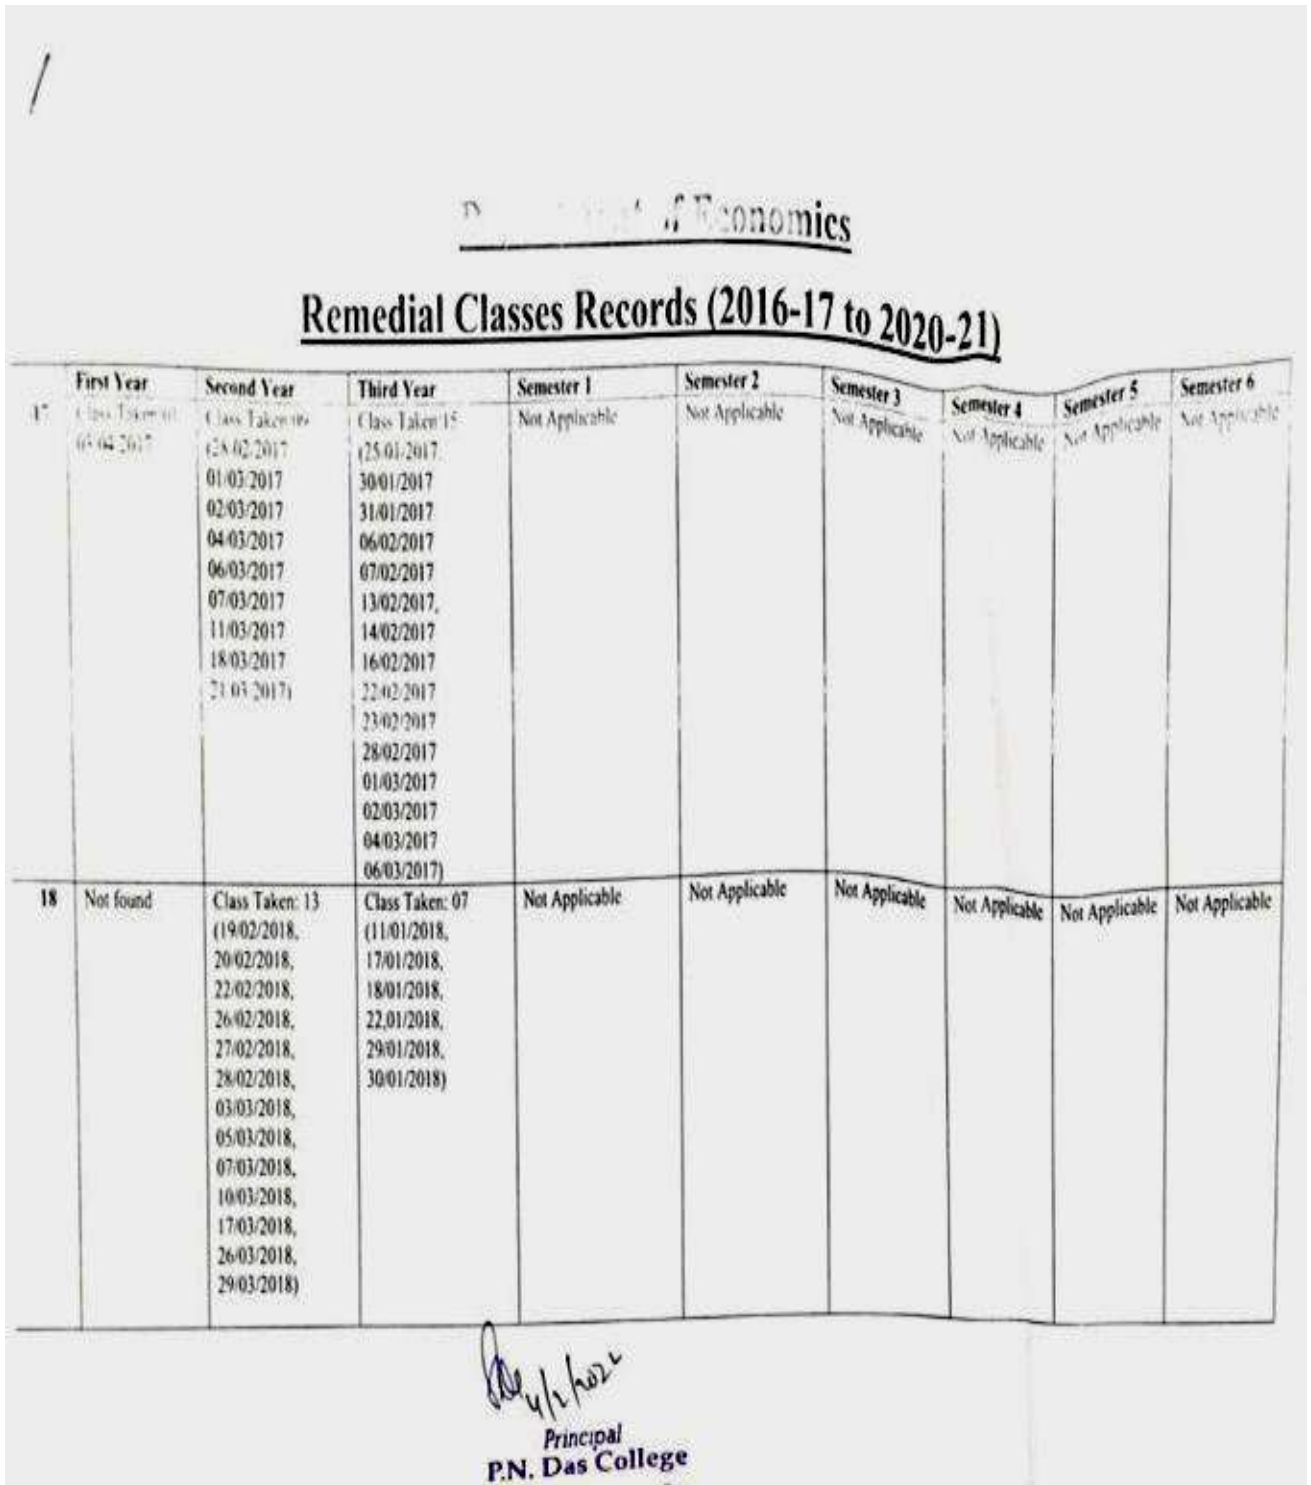 of Economics
Remedial Classes Records (2016-17 to 2020-21)
First Year Second Year Third Year Semester 1 Semester 2 Semester 3 Semester 4 Semester 5 Semester 6
17
Class Taken
2017
Class Taken 09
(28/02/2017
01/03/2017
02/03/2017
04/03/2017
06/03/2017
07/03/2017
11/03/2017
18/03/2017
21/03/2017)
Class Taken 15
(25/01/2017
30/01/2017
31/01/2017
06/02/2017
07/02/2017
13/02/2017,
14/02/2017
16/02/2017
22/02/2017
23/02/2017
28/02/2017
01/03/2017
02/03/2017
04/03/2017
06/03/2017)
Not Applicable
Not Applicable
Not Applicable
Not Applicable
Not Applicable
Not Applicable
18
Not found
Class Taken: 13
(19/02/2018,
20/02/2018,
22/02/2018,
26/02/2018,
27/02/2018,
28/02/2018,
03/03/2018,
05/03/2018,
07/03/2018,
10/03/2018,
17/03/2018,
26/03/2018,
29/03/2018)
Class Taken: 07
(11/01/2018,
17/01/2018,
18/01/2018,
22,01/2018,
29/01/2018,
30/01/2018)
Not Applicable
Not Applicable
Not Applicable
Not Applicable
Not Applicable
Not Applicable
4/2/2022
Principal
P.N. Das College